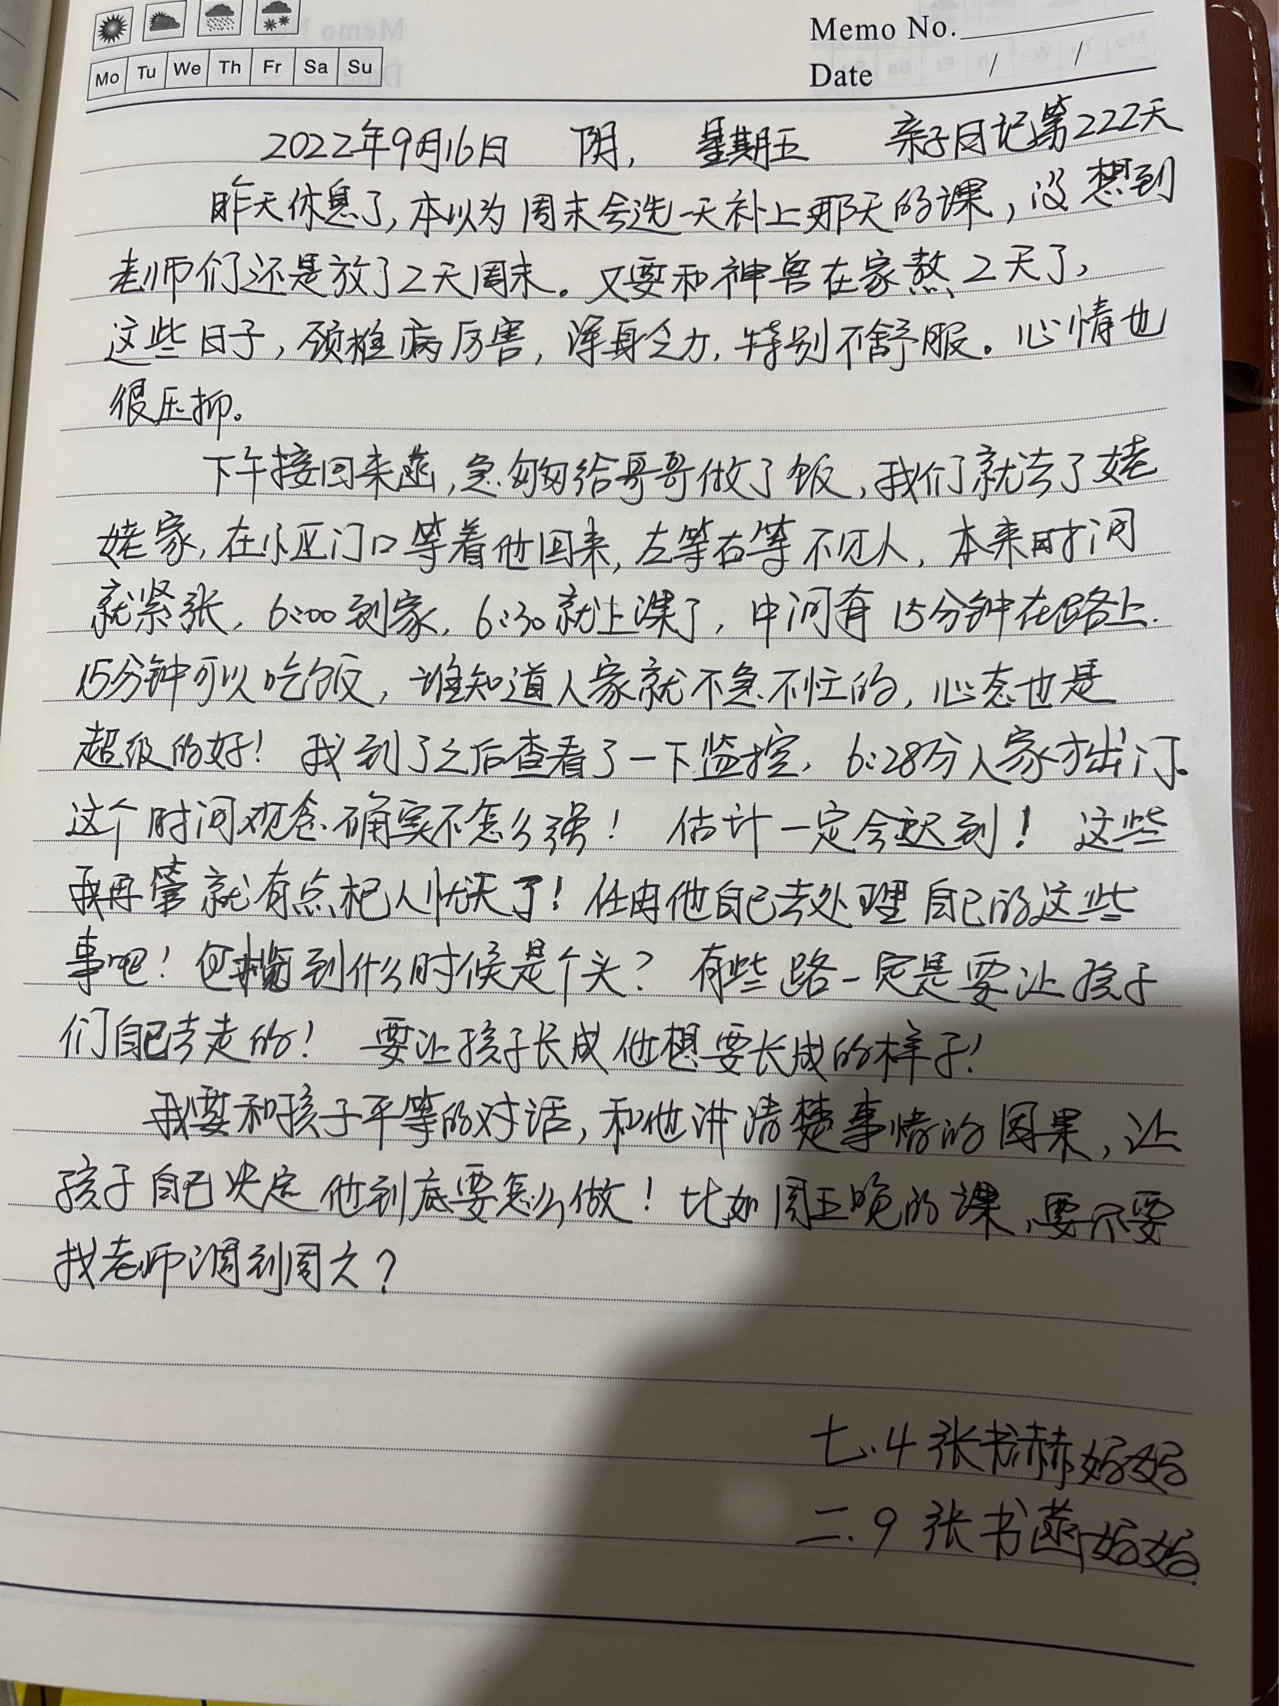 Memo No.
Mo Tu We Th Fr Sa Su
Date / /
2022年9月16日 阴, 星期五 亲子日记第222天
昨天休息了,本以为周末会选一天补上那天的课,没想到
老师们还是放了2天周末。又要和神兽在家熬2天了,
这些日子,颈椎病厉害,浑身乏力,特别不舒服。心情也
很压抑。
下午接回来菡,急匆匆给哥哥做了饭,我们就去了姥
姥家,在小区门口等着他回来,左等右等不见人,本来时间
就紧张,6:00到家,6:30就上课了,中间有15分钟在路上.
15分钟可以吃饭,谁知道人家就不急不忙的,心态也是
超级的好!我到了之后查看了一下监控,6:28分人家才出门。
这个时间观念确实不怎么强!估计一定会迟到!这些
我再管就有点杞人忧天了!任由他自己去处理自己的这些
事吧!包揽到什么时候是个头?有些路一定是要让孩子
们自己去走的!要让孩子长成他想要长成的样子!
我要和孩子平等的对话,和他讲清楚事情的因果,让
孩子自己决定他到底要怎么做!比如周五晚的课,要不要
找老师调到周六?
七.4张书赫妈妈
二.9张书菡妈妈